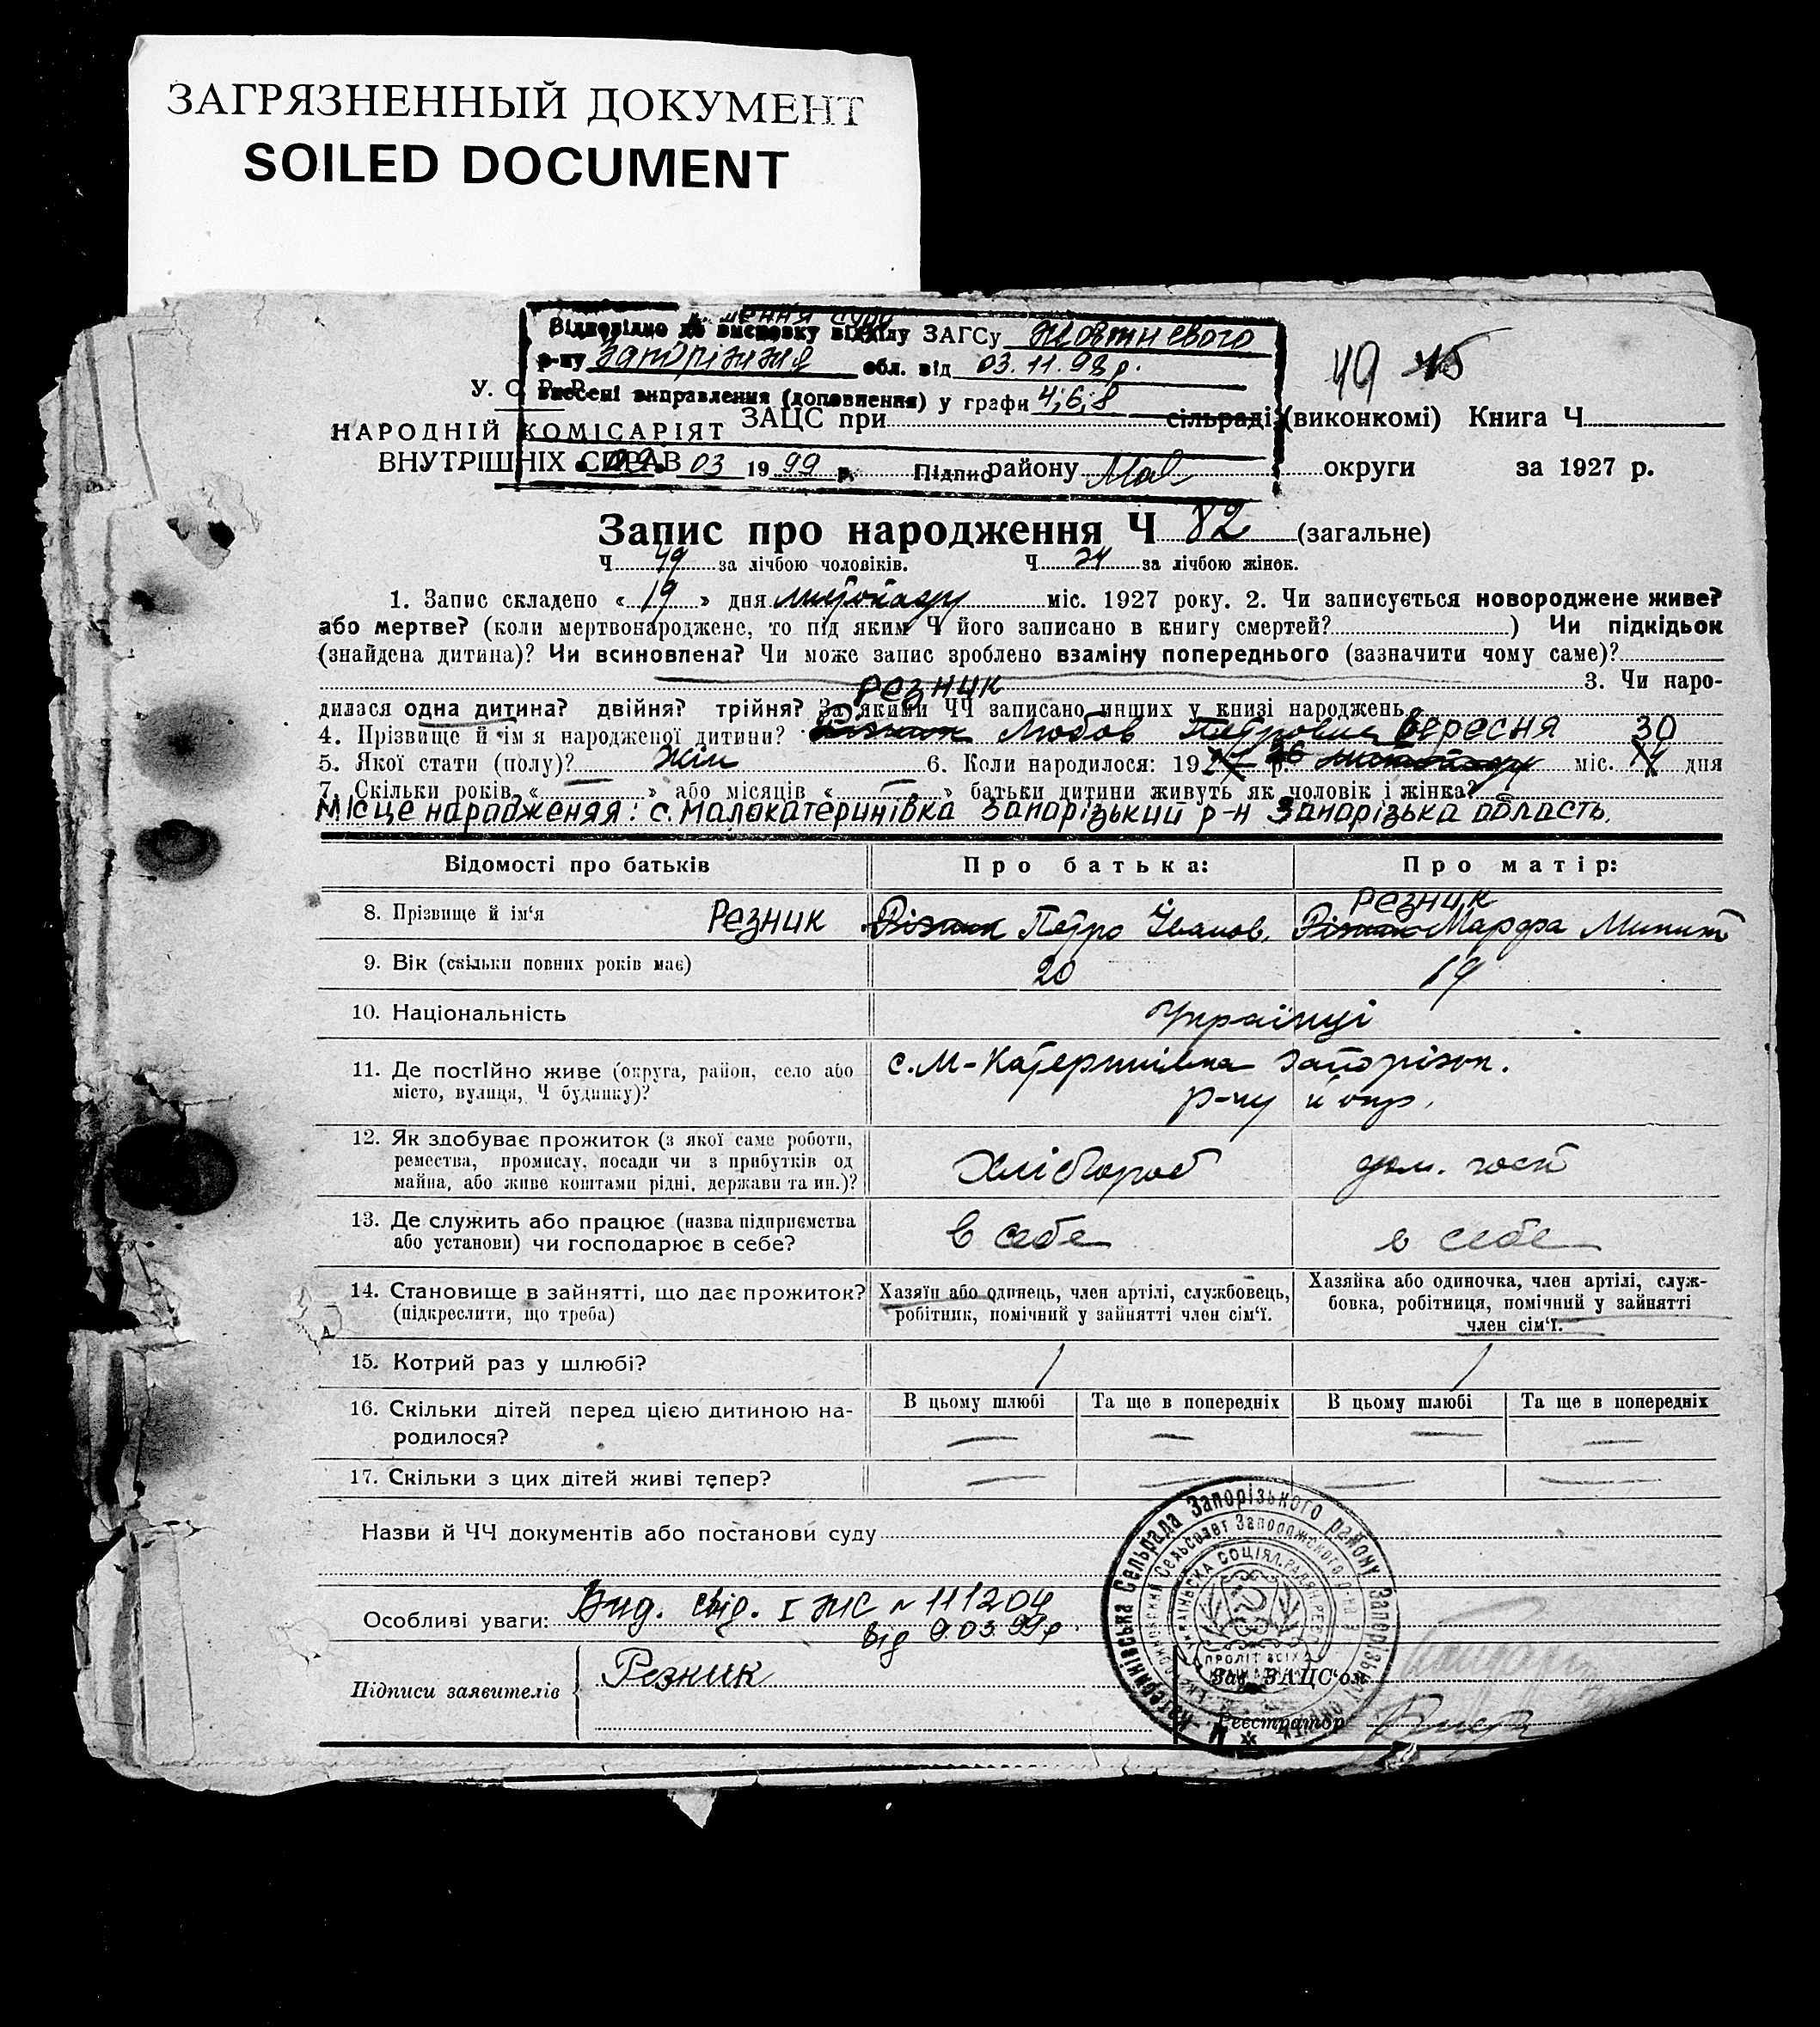 ЗАГРЯЗНЕННЫЙ ДОКУМЕНТ
SOILED DOCUMENT
Відповідно до висновку відділу ЗАГСу Жовтневого
р-ну Запоріжжя обл. від 03.11.98 р.
внесені виправлення (доповнення) у графи 4; 6; 8
09. 03 1999 р. Підпис
49 45
У. С. Р. Р.
НАРОДНІЙ КОМІСАРІЯТ
ВНУТРІШНІХ СПРАВ
ЗАЦС при сільраді (виконкомі) Книга Ч
району округи за 1927 р.
Запис про народження Ч 82 (загальне)
Ч 49 за лічбою чоловіків. Ч за лічбою жінок.
1. Запис складено « 19 » дня листопаду міс. 1927 року. 2. Чи записується новороджене живе?
або мертве? (коли мертвонароджене, то під яким Ч його записано в книгу смертей? ) Чи підкідьок
(знайдена дитина)? Чи всиновлена? Чи може запис зроблено взаміну попереднього (зазначити чому саме)?
3. Чи наро-
дилася одна дитина? двійня? трійня? За якими ЧЧ записано инших у книзі народжень
Резник
4. Прізвище й ім'я народженої дитини? Різник Любов Петровна вересня 30
5. Якої статі (полу)? Жін 6. Коли народилося: 1927 р. 26 листопаду міс. дня
7. Скільки років « — » або місяців « — » батьки дитини живуть як чоловік і жінка?
Місце народження: с. Малокатеринівка Запорізький р-н Запорізька область.
Відомості про батьків Про батька: Про матір:
Резник
8. Прізвище й ім'я Резник Різник Петро Іванов. Різник Марфа Микит
9. Вік (скільки повних років має) 20 19
10. Національність Українці
11. Де постійно живе (округа, район, село або
місто, вулиця, Ч будинку)?
с. М-Катеринівка Запорізьк.
р-ну й окр.
12. Як здобуває прожиток (з якої саме роботи,
ремества, промислу, посади чи з прибутків од
майна, або живе коштами рідні, держави та ин.)?
Хлібороб дом. госп
13. Де служить або працює (назва підприємства
або установи) чи господарює в себе?
в себе в себе
14. Становище в зайнятті, що дає прожиток?
(підкреслити, що треба)
Хазяїн або одинець, член артілі, службовець,
робітник, помічний у зайнятті член сім'ї.
Хазяйка або одиночка, член артілі, служ-
бовка, робітниця, помічний у зайнятті
член сім'ї.
15. Котрий раз у шлюбі? 1 1
В цьому шлюбі Та ще в попередніх В цьому шлюбі Та ще в попередніх
16. Скільки дітей перед цією дитиною на-
родилося? — — — —
17. Скільки з цих дітей живі тепер? — — — —
Назви й ЧЧ документів або постанови суду
Особливі уваги: Вид. свід. I ЖС № 111204
від 9.03.99р.
Підписи заявителів Резник
Зав. ЗАЦС'ом
Реєстратор
Катеринівська Сельрада Запорізького району Запорізької округи
УКРАЇНСЬКА СОЦІЯЛ. РАДЯН. РЕСП.